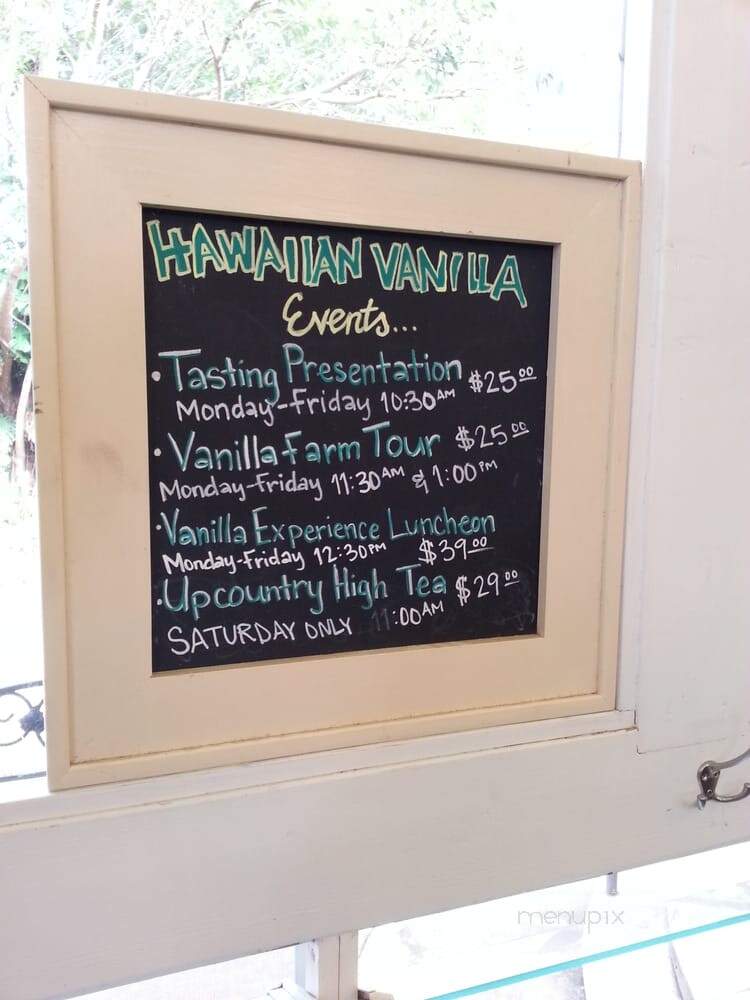 HAWAIIAN VANILLA
Events...
· Tasting Presentation $25.00
Monday-Friday 10:30 AM
· Vanilla Farm Tour $25.00
Monday-Friday 11:30 AM & 1:00 PM
· Vanilla Experience Luncheon
Monday-Friday 12:30 PM $39.00
· Upcountry High Tea $29.00
SATURDAY ONLY 11:00 AM
menupix